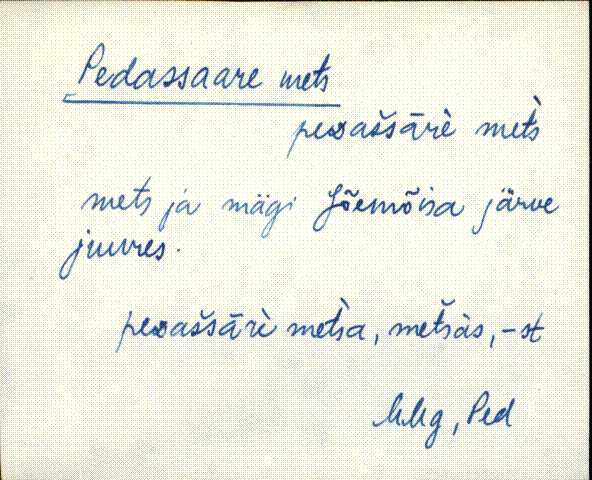 Pedassaare mets
peᴅašsārὲ met̀s
mets ja mägi Jõemõisa järve
juures.
peᴅašsārὲ met̀sa, metšàs, -st
Ped